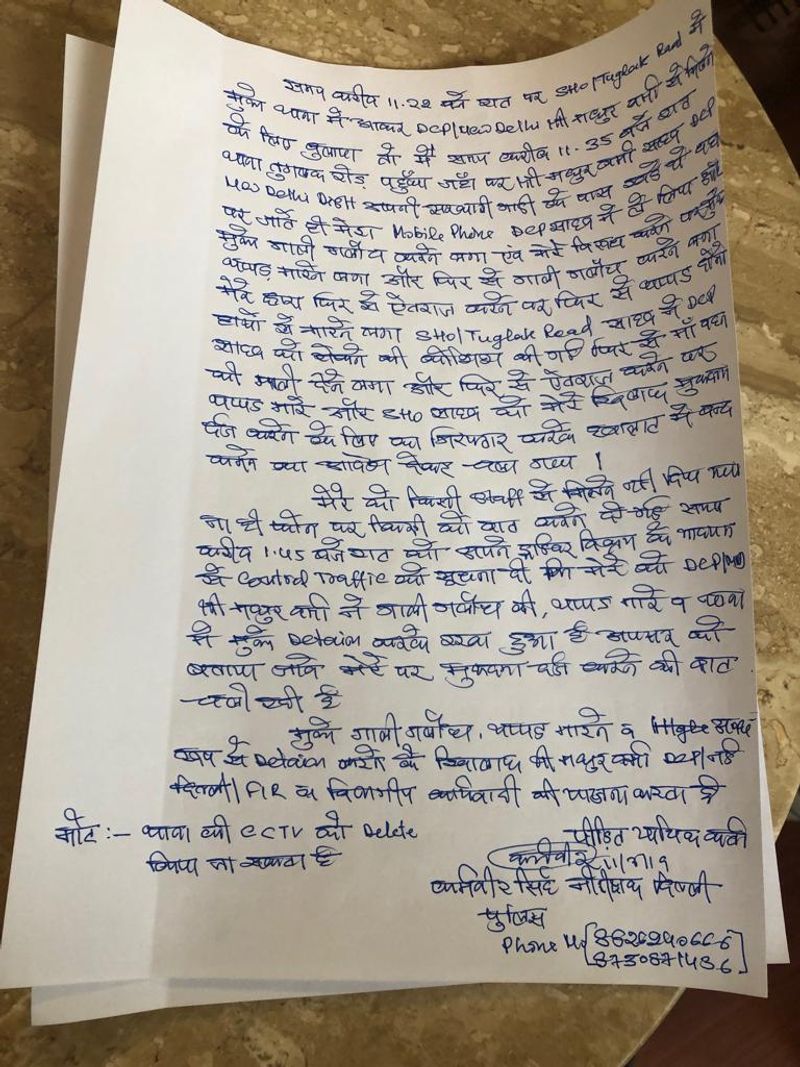 समय करीब 11.22 बजे रात पर SHO/Tuglak Road ने
मुझे थाना में आकर DCP/New Delhi श्री मधुर वर्मा से मिलने
के लिए बुलाया तो मैं समय करीब 11.35 बजे रात
थाना तुगलक रोड़ पहुँचा जहाँ पर श्री मधुर वर्मा साहब DCP
New Delhi Distt अपनी सरकारी गाडी के पास खडे थे वहाँ
पर जाते ही मेरा Mobile Phone DCP साहब ने ले लिया और
मुझे गाली गलौच करने लगा एवं मेरे विरोध करने पर मुझे
थप्पड मारने लगा और फिर से गाली गलौच करने लगा
मेरे द्वारा फिर से ऐतराज करने पर फिर से थप्पड दोनो
हाथों से मारने लगा SHO/Tuglak Road साहब ने DCP
साहब को रोकने की कोशिश की गई फिर से माँ बहन
की गाली देने लगा और फिर से ऐतराज करने पर
थप्पड मारे और SHO साहब को मेरे खिलाफ मुकदमा
दर्ज करने के लिए का गिरफ्तार करके हवालात मे बन्द
करने का आदेश देकर चला गया।
मेरे को किसी Staff से मिलने नहीं दिया गया
ना ही फोन पर किसी को बात करने दी गई समय
करीब 1.45 बजे रात को अपने ड्राईवर विक्रम के माध्यम
से Control Traffic को सूचना दी कि मेरे को DCP/ND
श्री मधुर वर्मा ने गाली गलौच की, थप्पड मारे व थाना
मे मुझे Detain करके रखा हुआ है अफसर को
बताया जावे मेरे पर मुकदमा दर्ज करने की बात
चली रही है
मुझे गाली गलौच, थप्पड मारने व
रूप से Detain करने के खिलाफ श्री मधुर वर्मा DCP/नई
दिल्ली/ FIR व विभागीय कार्यवाही की करता हूँ
नोट :- थाना की CCTV को Delete
किया जा सकता है
पीड़ित
कर्मवीर
कर्मवीर सिंह दिल्ली
पुलिस
Phone No